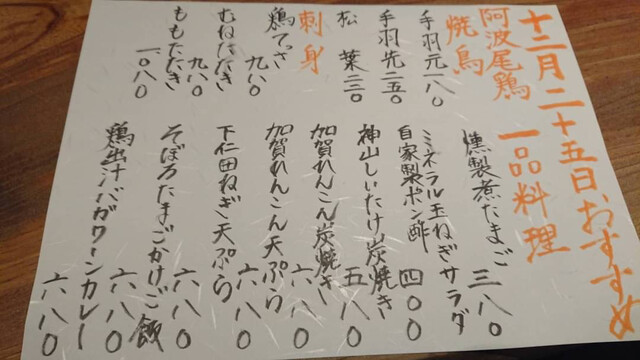 十二月二十五日おすすめ
阿波尾鶏
焼鳥
手羽元一八〇
手羽先二五〇
松葉二三〇
刺身
鶏てっさ 九八〇
むねたたき 九八〇
ももたたき 一〇八〇
一品料理
燻製煮たまご 三八〇
ミネラル玉ねぎサラダ
自家製ポン酢 四〇〇
神山しいたけ炭焼き 五八〇
加賀れんこん炭焼き 六八〇
加賀れんこん天ぷら 六八〇
下仁田ねぎ天ぷら 六八〇
そぼろたまごかけご飯 六八〇
鶏出汁バガワーンカレー 六八〇